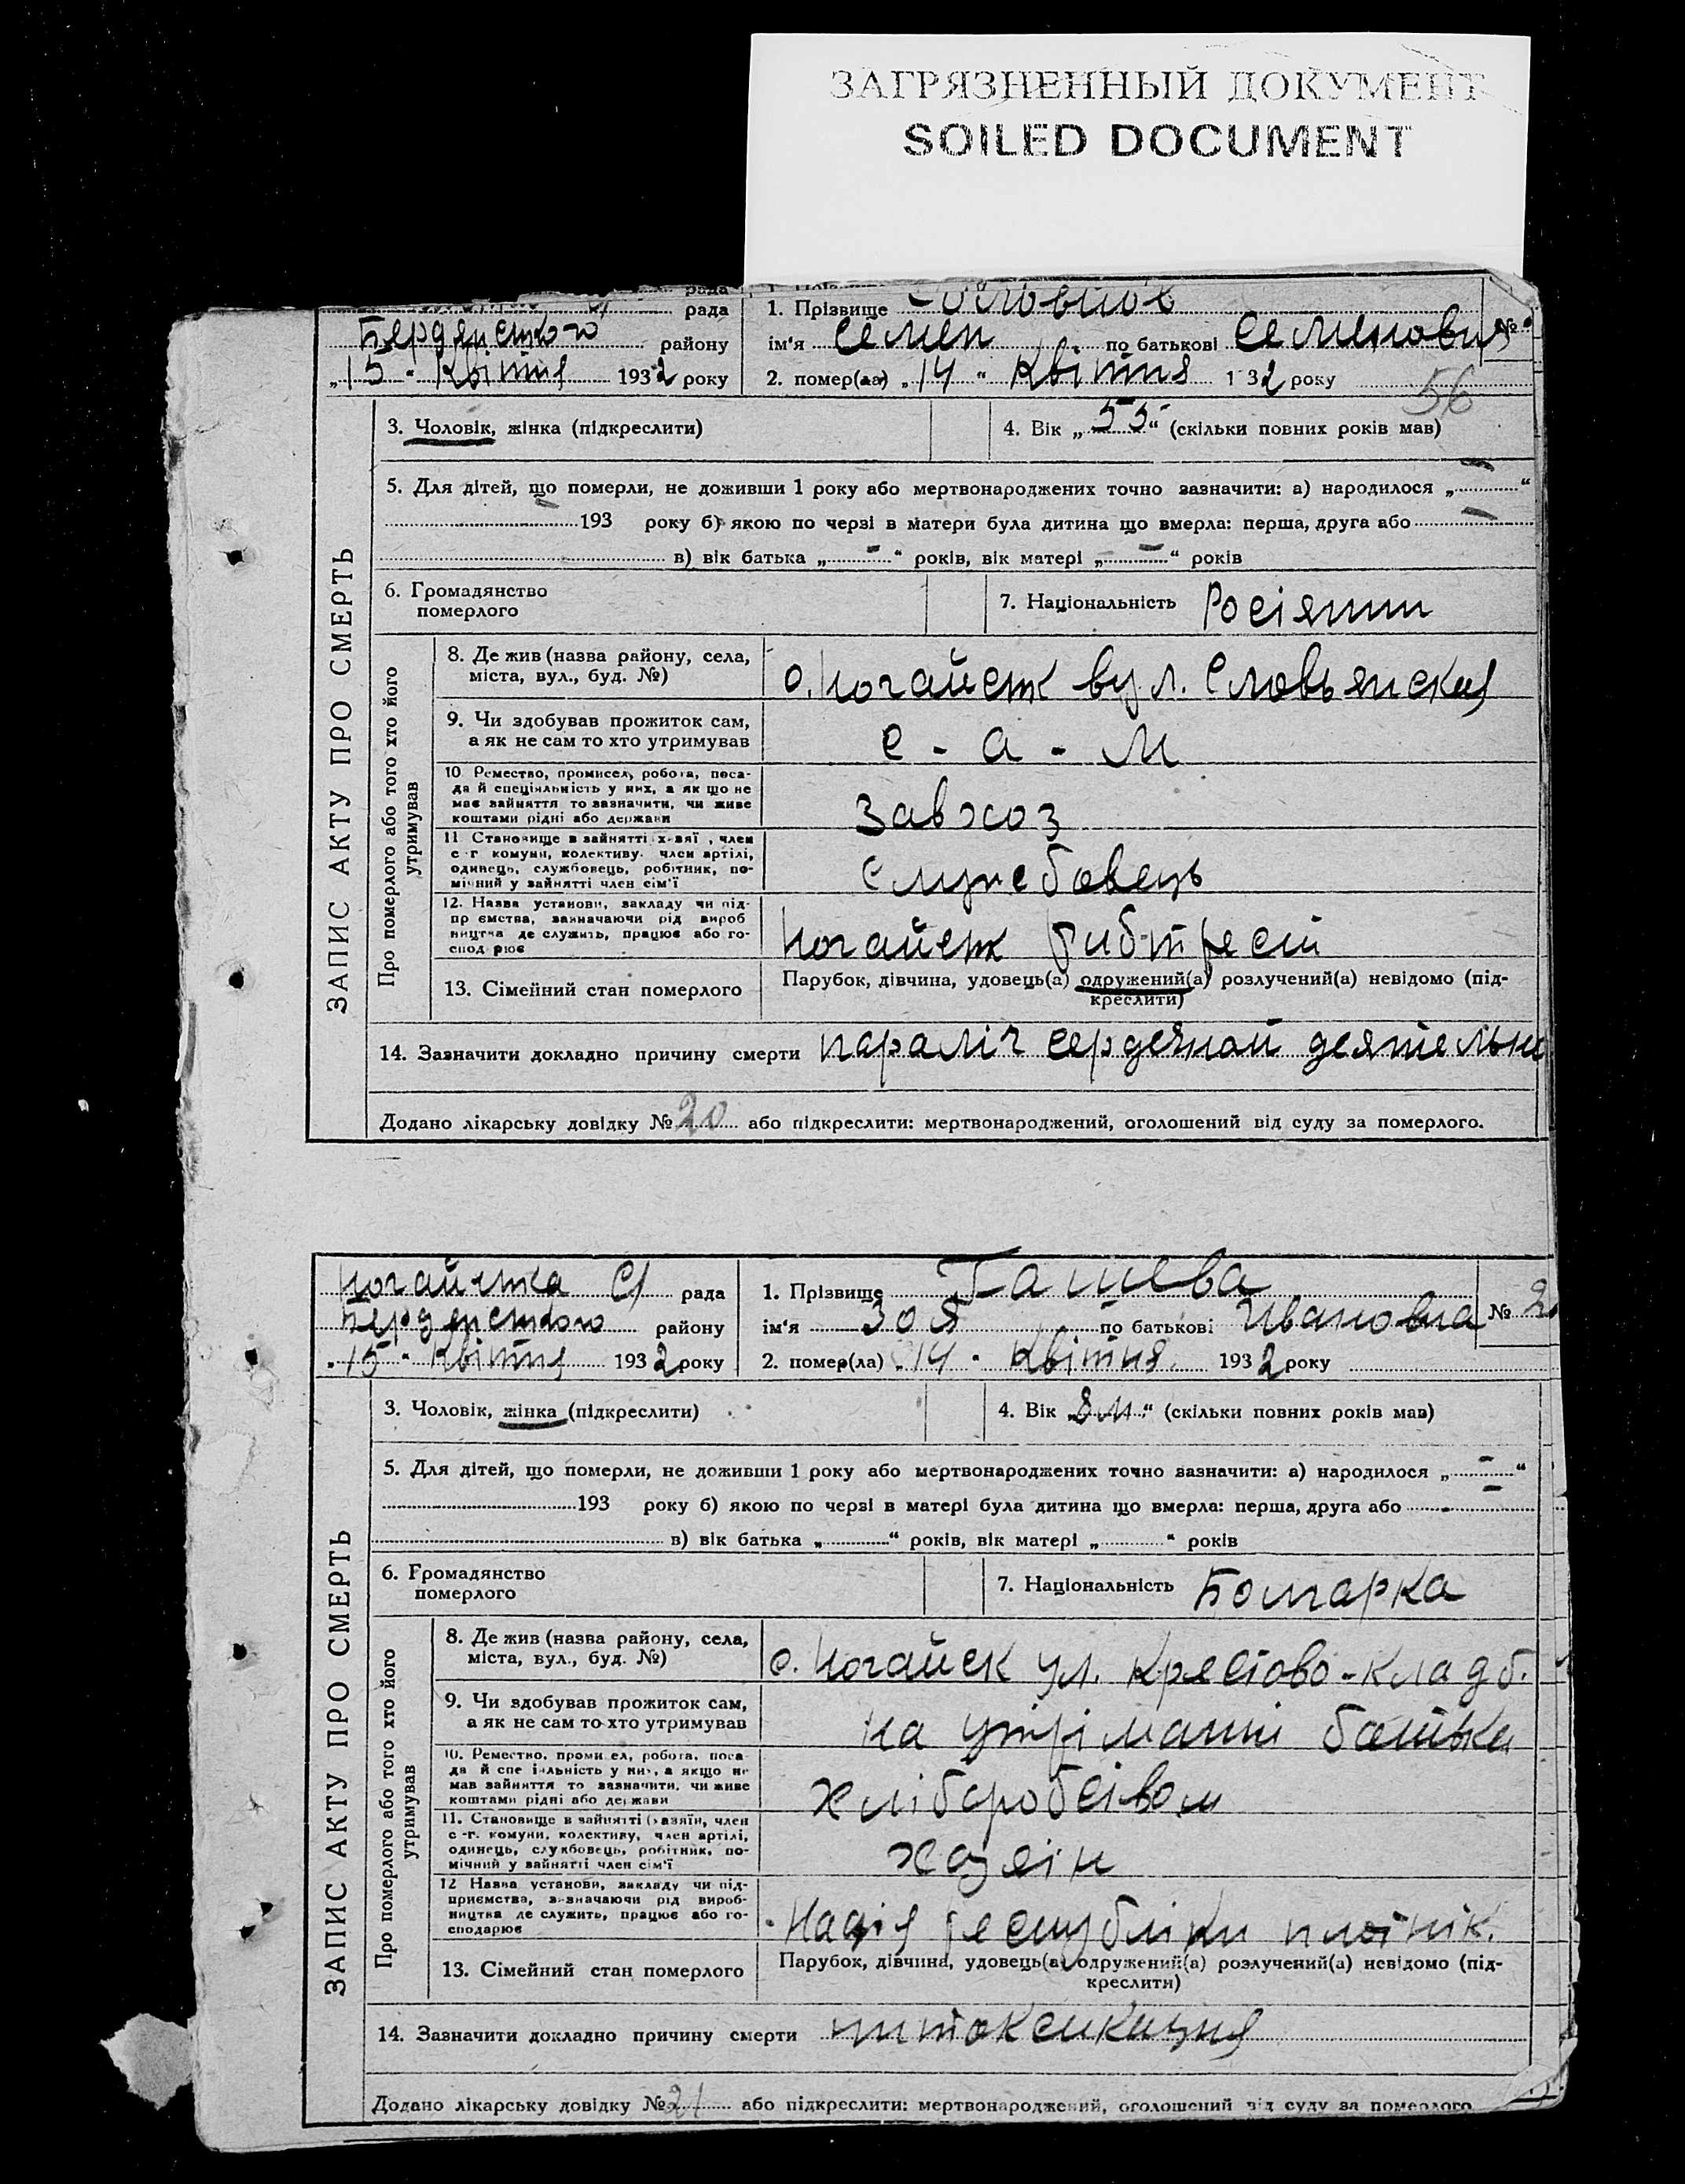 ЗАГРЯЗНЕННЫЙ ДОКУМЕНТ
SOILED DOCUMENT
рада 1. Прізвище
Бердянского району ім'я Семен по батькові Семенович №
„15“ Квітня 1932 року 2. помер(ла) „14“ Квітня 1 32 року
56
ЗАПИС АКТУ ПРО СМЕРТЬ
3. Чоловік, жінка (підкреслити) 4. Вік „55“ (скільки повних років мав)
5. Для дітей, що померли, не доживши 1 року або мертвонароджених точно зазначити: а) народилося „ — “
193 року б) якою по черзі в матери була дитина що вмерла: перша, друга або —
в) вік батька „ — “ років, вік матері „ — “ років
6. Громадянство
померлого
7. Національність Росіянин
Про померлого або того хто його
утримував
8. Де жив (назва району, села,
міста, вул., буд. №)
с. Ногайск вул. Словьянская
9. Чи здобував прожиток сам,
а як не сам то хто утримував
с - а - м
10 Ремество, промисел, робота, поса-
да й спеціяльність у них, а як що не
має зайняття то зазначити, чи живе
коштами рідні або держави
Завхоз
11 Становище в зайнятті х-зяї , член
с-г комуни, колективу, член артілі,
одинець, службовець, робітник, по-
мічний у зайнятті член сім'ї
Служебовець
12. Назва установи, закладу чи під-
пр ємства, зазначаючи рід вироб
ництва де служить, працює або го-
спод рює
Ногайск Рибтрест
13. Сімейний стан померлого
Парубок, дівчина, удовець(а) одружений(а) розлучений(а) невідомо (під-
креслити)
14. Зазначити докладно причину смерти параліч сердечной деятельн
Додано лікарську довідку № 20 або підкреслити: мертвонароджений, оголошений від суду за померлого.
Ногайска С/ рада 1. Прізвище
Бердянского району ім'я Зоя по батькові Ивановна № 2
„15“ Квітня 1932 року 2. помер(ла) „14“ Квітня 1932 року
ЗАПИС АКТУ ПРО СМЕРТЬ
3. Чоловік, жінка (підкреслити) 4. Вік „8 м.“ (скільки повних років мав)
5. Для дітей, що померли, не доживши 1 року або мертвонароджених точно зазначити: а) народилося „ — “
193 року б) якою по черзі в матері була дитина що вмерла: перша, друга або —
в) вік батька „ “ років, вік матері „ “ років
6. Громадянство
померлого
7. Національність Болгарка
Про померлого або того хто його
утримував
8. Де жив (назва району, села,
міста, вул., буд. №)
с. Ногайск ул. Крестово-кладб.
9. Чи здобував прожиток сам,
а як не сам то хто утримував
на утріманні батька
10. Ремество, проми ел, робота, поса
да й спе іяльність у них, а якщо не
мав зайняття то зазначити, чи живе
коштами рідні або держави
хлібсробсівом
11. Становище в зайнятті (хазяїн, член
с-г. комуни, колективу, член артілі,
одинець, службовець, робітник, по-
мічний у зайнятті член сім'ї
хазяін
12 Назва установи, закладу чи під-
приємства, зазначаючи рід вироб-
ництва де служить, працює або го-
сподарює
13. Сімейний стан померлого
Парубок, дівчина, удовець(а) одружений(а) розлучений(а) невідомо (під-
креслити)
14. Зазначити докладно причину смерти интоксикация
Додано лікарську довідку № 21 або підкреслити: мертвонароджений, оголошений від суду за померлого